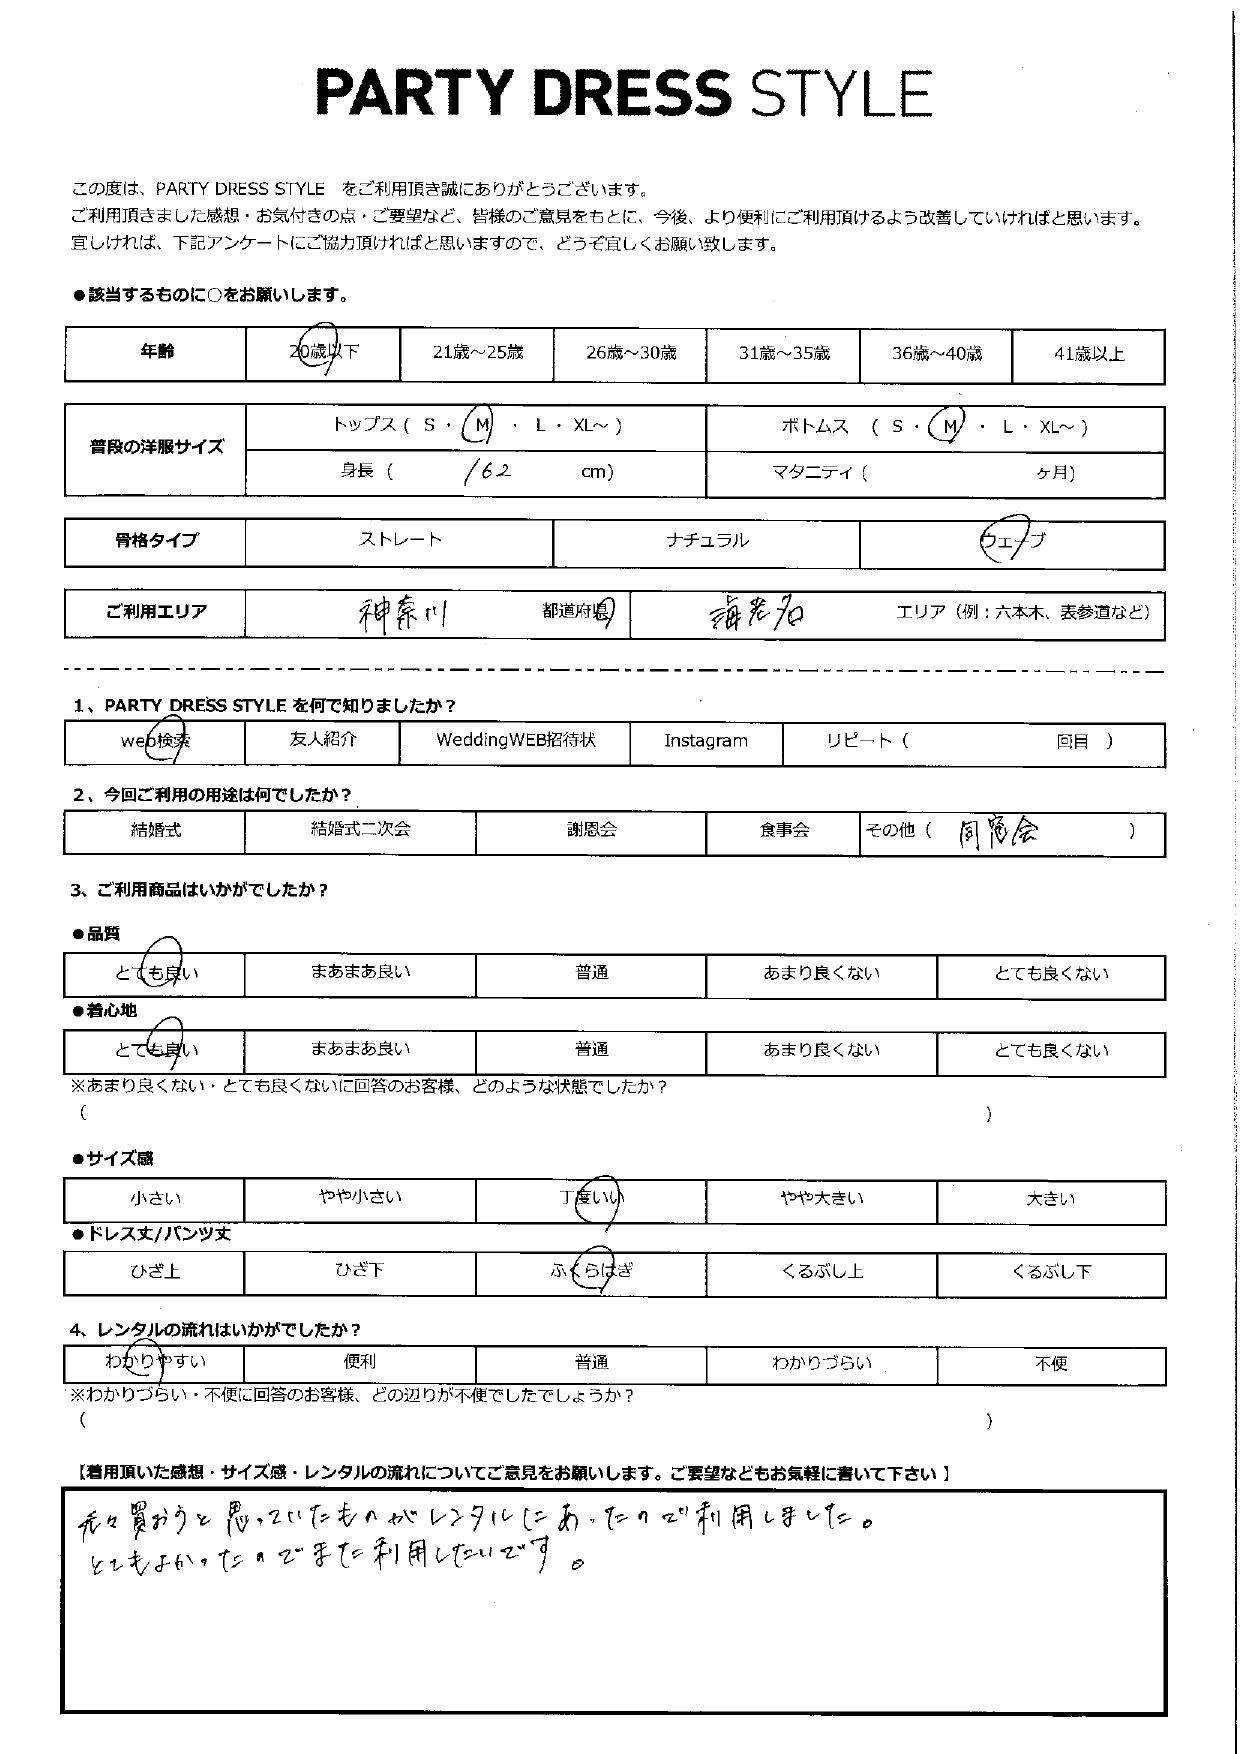 PARTY DRESS STYLE
この度は、PARTY DRESS STYLE　をご利用頂き誠にありがとうございます。
ご利用頂きました感想・お気付きの点・ご要望など、皆様のご意見をもとに、今後、より便利にご利用頂けるよう改善していければと思います。
宜しければ、下記アンケートにご協力頂ければと思いますので、どうぞ宜しくお願い致します。
●該当するものに○をお願いします。
年齢 20歳以下 21歳～25歳 26歳～30歳 31歳～35歳 36歳～40歳 41歳以上
普段の洋服サイズ トップス ( S ・ M ・ L ・ XL～ ) ボトムス ( S ・ M ・ L ・ XL～ )
身長 ( 162 cm) マタニティ ( ヶ月)
骨格タイプ ストレート ナチュラル ウェーブ
ご利用エリア 神奈川 都道府県 海老名 エリア（例：六本木、表参道など）
1、PARTY DRESS STYLE を何で知りましたか？
web検索 友人紹介 WeddingWEB招待状 Instagram リピート ( 回目 )
2、今回ご利用の用途は何でしたか？
結婚式 結婚式二次会 謝恩会 食事会 その他 ( 同窓会 )
3、ご利用商品はいかがでしたか？
●品質
とても良い まあまあ良い 普通 あまり良くない とても良くない
●着心地
とても良い まあまあ良い 普通 あまり良くない とても良くない
※あまり良くない・とても良くないに回答のお客様、どのような状態でしたか？
( )
●サイズ感
小さい やや小さい 丁度いい やや大きい 大きい
●ドレス丈/パンツ丈
ひざ上 ひざ下 ふくらはぎ くるぶし上 くるぶし下
4、レンタルの流れはいかがでしたか？
わかりやすい 便利 普通 わかりづらい 不便
※わかりづらい・不便に回答のお客様、どの辺りが不便でしたでしょうか？
( )
【着用頂いた感想・サイズ感・レンタルの流れについてご意見をお願いします。ご要望などもお気軽に書いて下さい】
元々買おうと思っていたものがレンタルにあったので利用しました。
とてもよかったのでまた利用したいです。